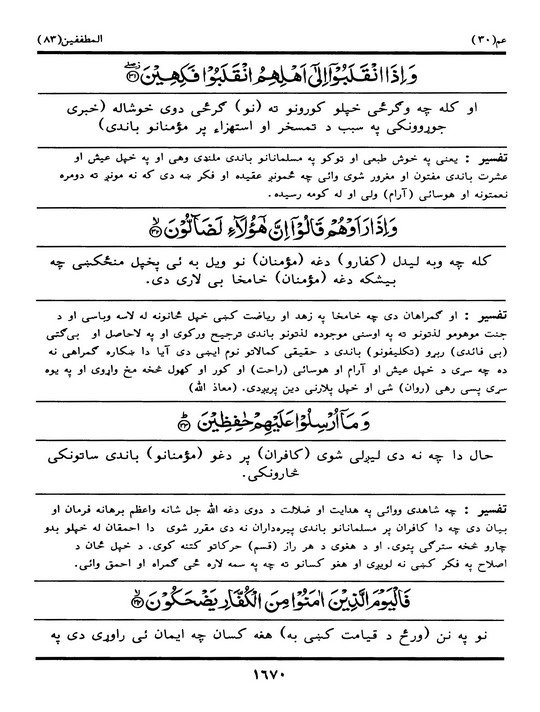 عم(۳۰)
المطففين(۸۳)
وَاِذَا انْقَلَبُوْٓا اِلٰٓى اَهْلِهِمُ انْقَلَبُوْا فَكِهِيْنَ ۝۳۱
او کله چه وگرځي خپلو کورونو ته (نو) گرځي دوی خوشاله (خبری
جوړوونکي په سبب د تمسخر او استهزاء پر مؤمنانو باندی)
تفسير : يعنی په خوش طبعی او توکو په مسلمانانو باندی ملنډی وهی او په خپل عيش او
عشرت باندی مفتون او مغرور شوی وائی چه ځمونږ عقيده او فکر ښه دی که نه مونږ ته دومره
نعمتونه او هوسائی (آرام) ولی او له کومه رسيده.
وَاِذَا رَاَوْهُمْ قَالُوْٓا اِنَّ هٰٓؤُلَآءِ لَضَآلُّوْنَ ۝۳۲
کله چه وبه ليدل (کفارو) دغه (مؤمنان) نو ويل به ئی پخپل منځکښی چه
بيشکه دغه (مؤمنان) خامخا بی لاری دی.
تفسير : او گمراهان دی چه خامخا په زهد او رياضت کښی خپل ځانونه له لاسه وباسی او د
جنت موهومو لذتونو ته په اوسنی موجوده لذتونو باندی ترجيح ورکوی او په لاحاصل او بی‌گټی
(بی فائدی) ربړو (تکليفونو) باندی د حقيقی کمالاتو نوم ايښی دی آيا دا ښکاره گمراهی نه
ده چه سړی د خپل عيش او آرام او هوسائی (راحت) او کور او کهول څخه مخ واړوی او په يوه
سړی پسی رهی (روان) شی او خپل پلارنی دين پريږدی. (معاذ الله)
وَمَآ اُرْسِلُوْا عَلَيْهِمْ حٰفِظِيْنَ ۝۳۳
حال دا چه نه دی ليږلی شوی (کافران) پر دغو (مؤمنانو) باندی ساتونکی
څارونکی.
تفسير : چه شاهدی ووائی په هدايت او ضلالت د دوی دغه الله جل شانه واعظم برهانه فرمان او
بيان دی چه دا کافران پر مسلمانانو باندی پيره‌داران نه دی مقرر شوی دا احمقان له خپلو بدو
چارو څخه سترگی پټوی. او د هغوی د هر راز (قسم) حرکاتو کتنه کوی. د خپل ځان د
اصلاح په فکر کښی نه لويږی او هغو کسانو ته چه په سمه لاره ځی گمراه او احمق وائی.
فَالْيَوْمَ الَّذِيْنَ اٰمَنُوْا مِنَ الْكُفَّارِ يَضْحَكُوْنَ ۝۳۴
نو په نن (ورځ د قيامت کښی به) هغه کسان چه ايمان ئی راوړی دی په
۱٦۷۰